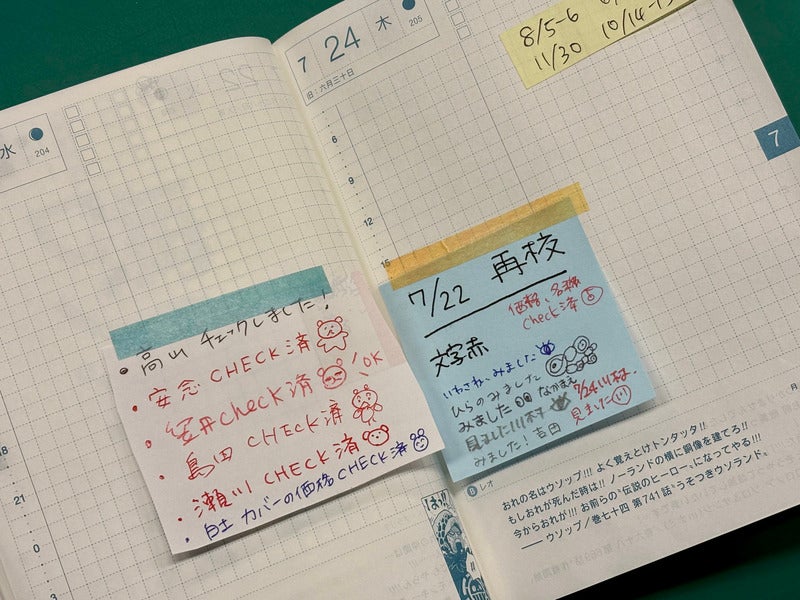 水
204
18
21
0
3
• 高山 チェックしました!
• 安念 CHECK済
• check済 OK
• 島田 CHECK済
• 瀬川 CHECK済
• 白土 カバーの価格 CHECK済
7 24 木
205
旧:六月三十日
8/5-6
11/30 10/14-15
7
6
9
12
15
7/22 再校
価格、名称
check済 吉
文字赤
いわさねーみました
ひらのみました
みました なかまえ
見ました 川村
みました! 吉田
7/24 川村
見ました 川
月
Ⓑ レオ
おれの名はウソップ!!! よく覚えとけトンタッタ!!
もしおれが死んだ時は!! ノーランドの横に銅像を建てろ!!
今からおれが!!! お前らの“伝説のヒーロー”になってやる!!!
── ウソップ/巻七十四 第741話“うそつきウソランド”
はっ!!